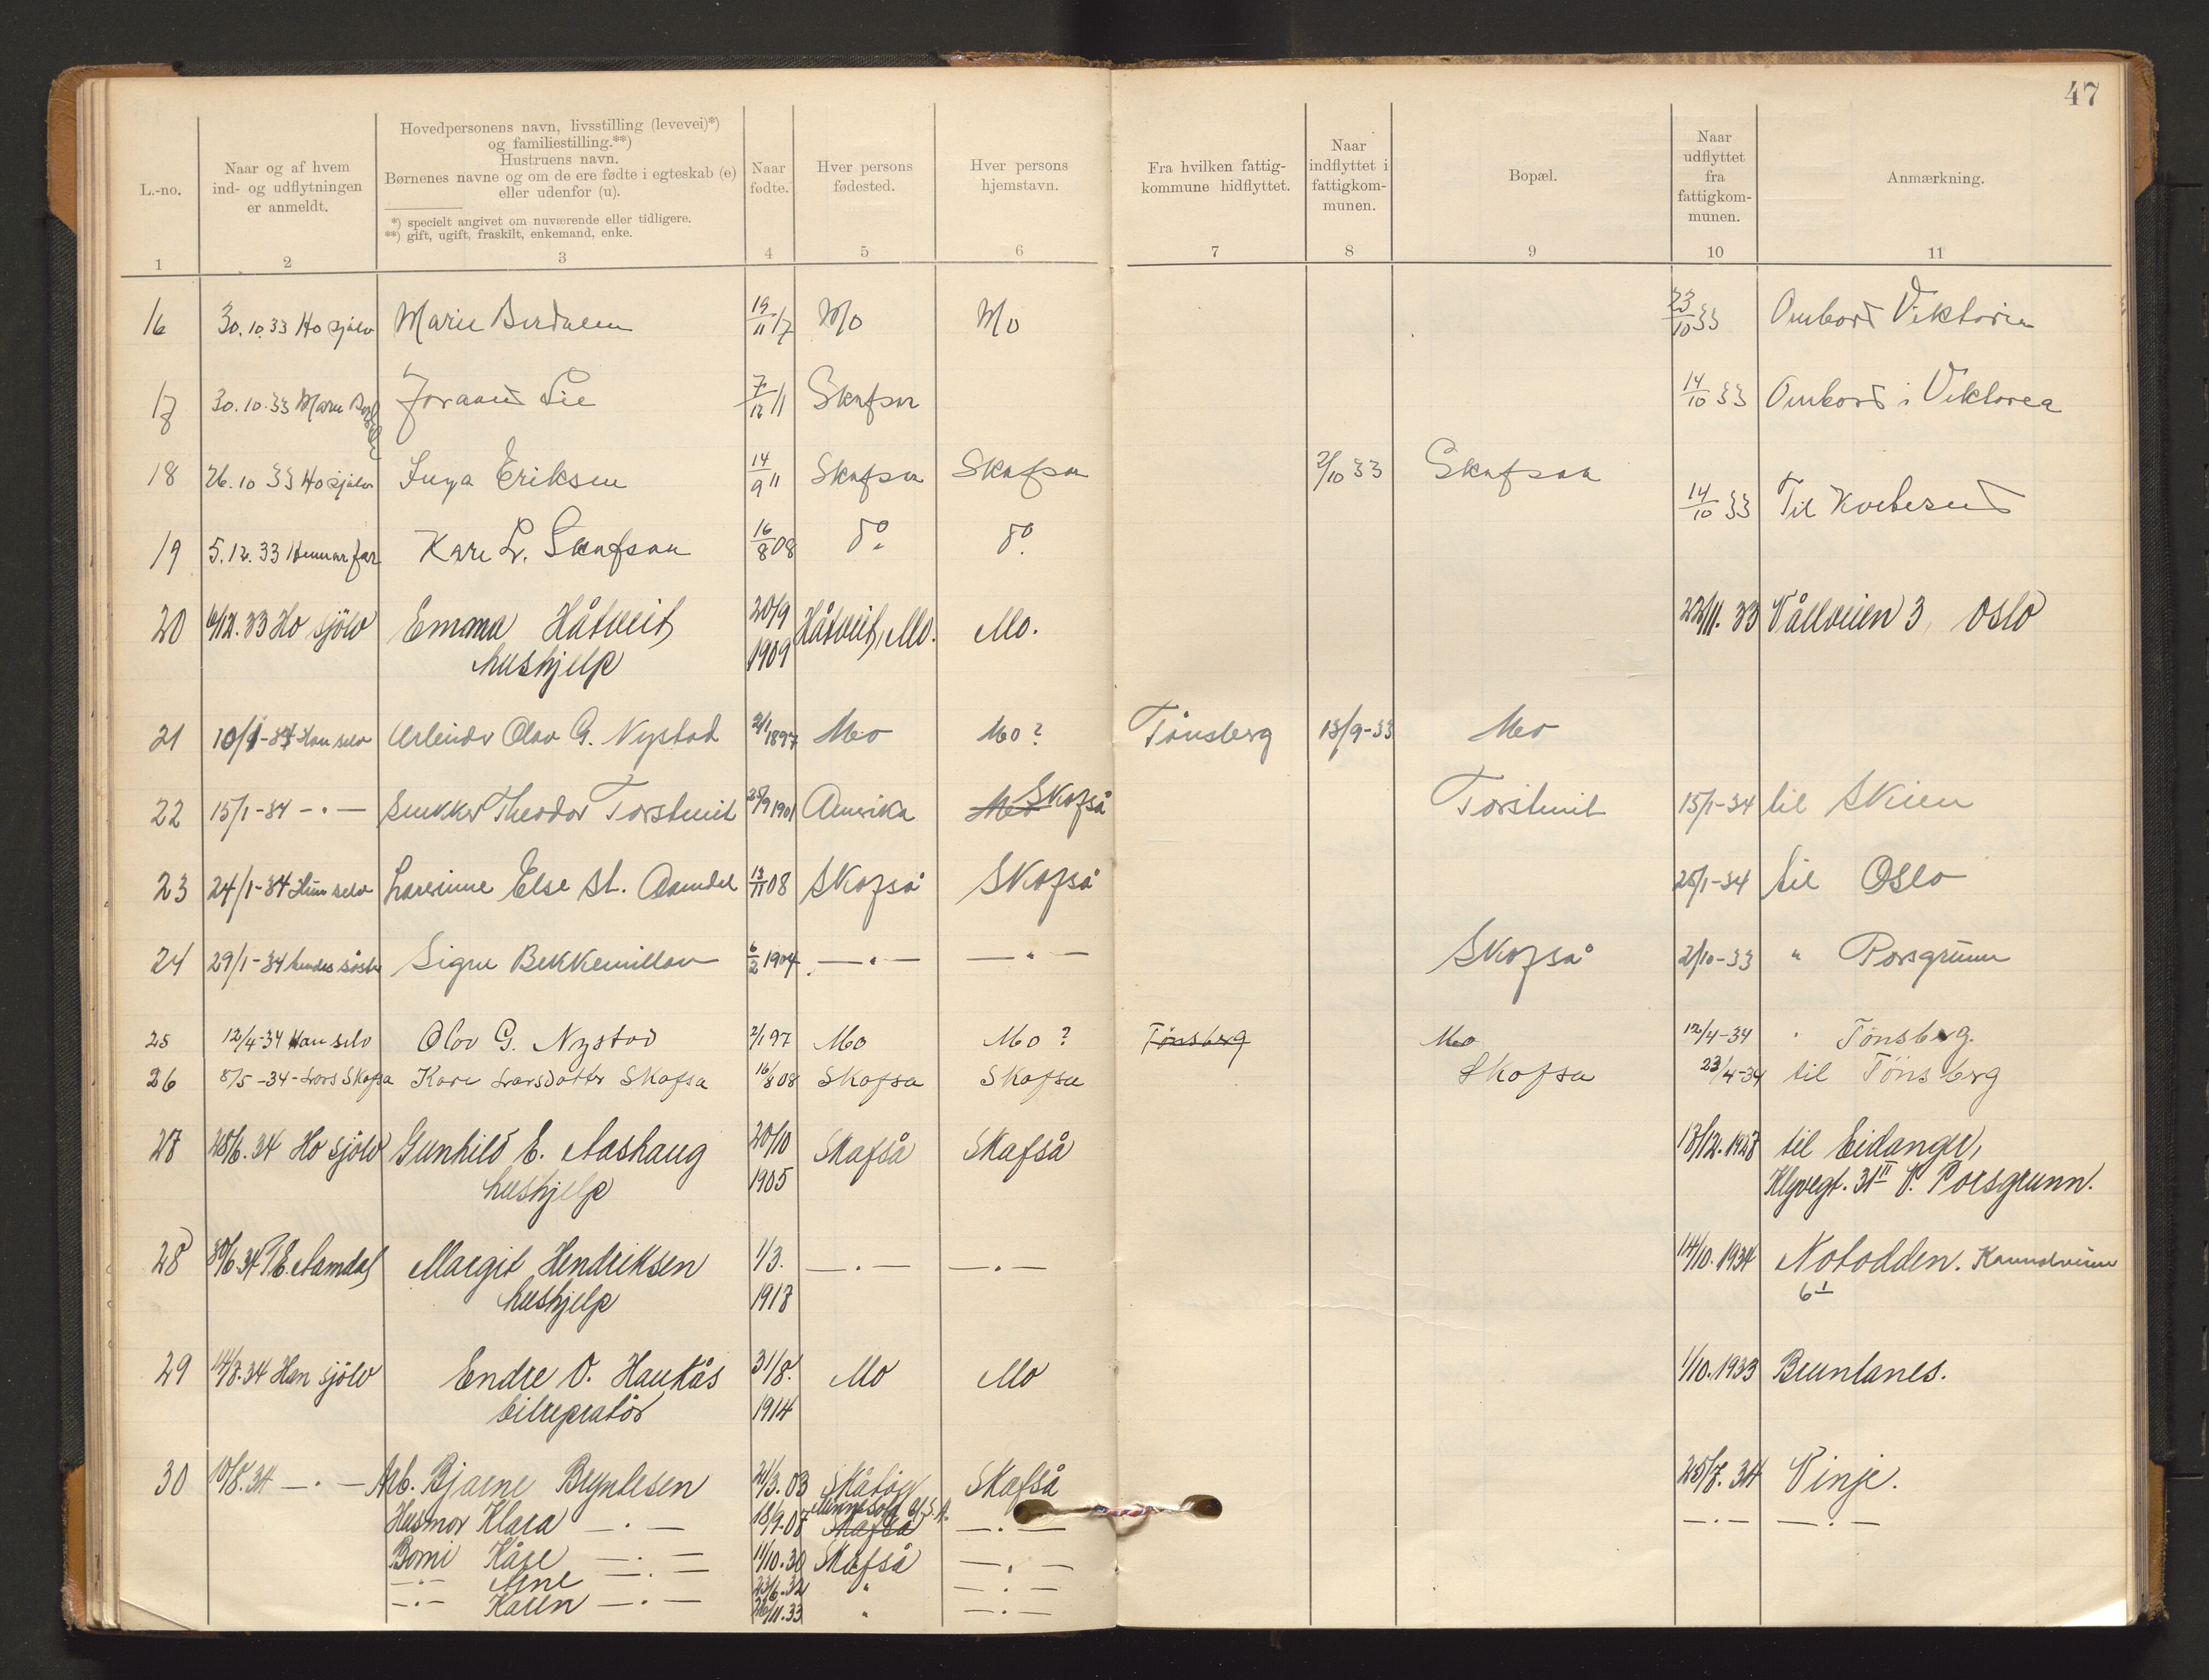 47
L.-no.
Naar og af hvem
ind- og udflytningen
er anmeldt.
Hovedpersonens navn, livsstilling (levevei)*)
og familiestilling.**)
Hustruens navn.
Børnenes navne og om de ere fødte i egteskab (e)
eller udenfor (u).
*) specielt angivet om nuværende eller tidligere.
**) gift, ugift, fraskilt, enkemand, enke.
Naar
fødte.
Hver persons
fødested.
Hver persons
hjemstavn.
Fra hvilken fattig-
kommune hidflyttet.
Naar
indflyttet i
fattigkom-
munen.
Bopæl.
Naar
udflyttet
fra
fattigkom-
munen.
Anmærkning.
1 2 3 4 5 6 7 8 9 10 11
16 30.10.33 Ho sjølv Marie 19/11 17 Mo Mo 23/10 33 Ombord Viktoria
17 30.10.33 Marie Joraand Lie 7/12 11 Skafsaa 14/10 33 Ombord i Viktoria
18 26.10 33 Ho sjølv Inga Eriksen 14/9 11 Skafsaa Skafsaa 2/10 33 Skafsaa
19 5.12.33 Hennar far Kari L. Skafsaa 16/8 08 do do 14/10 33 Til Kviteseid
20 6/12.33 Ho sjölv Emma Håtveit, 20/9 Håtveit, Mo. Mo. 22/11. 33 Vållveien 3, Oslo
hushjelp 1909
21 10/1-34 Han selv Arbeider Olav G. Nystad 2/1 1897 Mo Mo? Tönsberg 13/9-33 Mo
22 15/1-34 -·- Snekker Theodor Torstveit 25/9 1901 Amerika Mo Skafså Torstveit 15/1-34 til Skien
23 24/1-34 Hun selv Lærerinne Else St. Aamdal 13/11 08 Skafså Skafså 25/1-34 til Oslo
24 29/1-34 hendes söster Signe Bekkemillom 6/2 1904 -·- -·- Skafså 2/10-33 " Porsgrunn
25 12/4-34 Han selv Olav G. Nystad 2/1 97 Mo Mo? Tönsberg Mo 12/4-34 " Tönsberg.
26 8/5-34- Lars Skafsa Kari Larsdatter Skafsa 16/8 08 Skafsa Skafsa Skafsa 23/4-34 til Tönsberg
27 28/6.34 Ho sjölv Gunhild E. Aashaug 20/10 Skafså Skafså 13/12.1927 til Eidanger,
hushjelp 1905 Klyvegt. 31 II V. Porsgrunn.
28 30/6.34 T.E. Aamdal Margit Hendriksen 1/3. -·- -·- 14/10.1934 Notodden.
hushjelp 1917 6 I
29 14/7.34 Han sjölv Endre O. Haukås 31/8. Mo Mo 1/10.1933 Brunlanes.
bilrepratör 1914
30 10/8.34 -·- Arb. Bjarne Bryntesen 21/3.03 Skåtöy Skafså 25/7.34 Vinje.
Husmor Klara -·- 18/9.07 Minnesota U.S.A. Skafså -·- -·- -·-
Born Kåre -·- 11/10.30 Skafså -·-
-·- Arne -·- 23/6.32 " -·-
-·- Karen -·- 26/11.33 " -·-